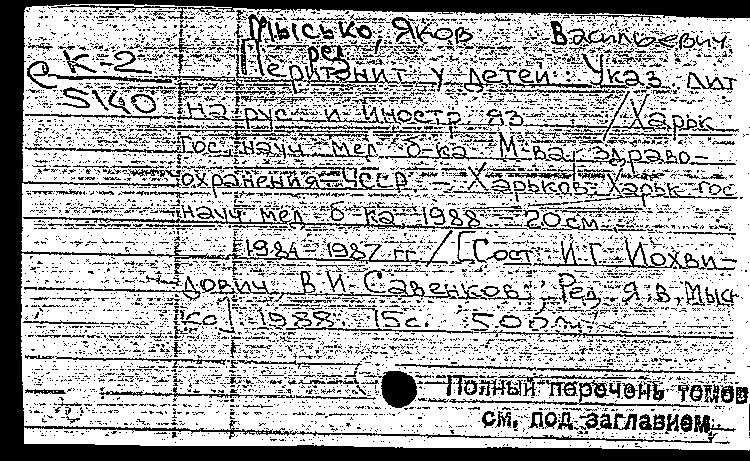 Мысько, Яков Васильевич
ред.
К-2
5140
Перитонит у детей: Указ. лит
на рус. и иностр. яз. /Харьк.
гос. науч. мед. б-ка М-ва здраво-
охранения УССР. - Харьков: Харьк. гос
науч. мед. б-ка, 1988 - 20 см.
1984-1987 гг. /[Сост. И.Г. Иохви-
дович, В.И. Савенков; Ред. Я.В. Мысь-
ко]. 1988. 15с. 500
Полный перечень томов
см. под заглавием